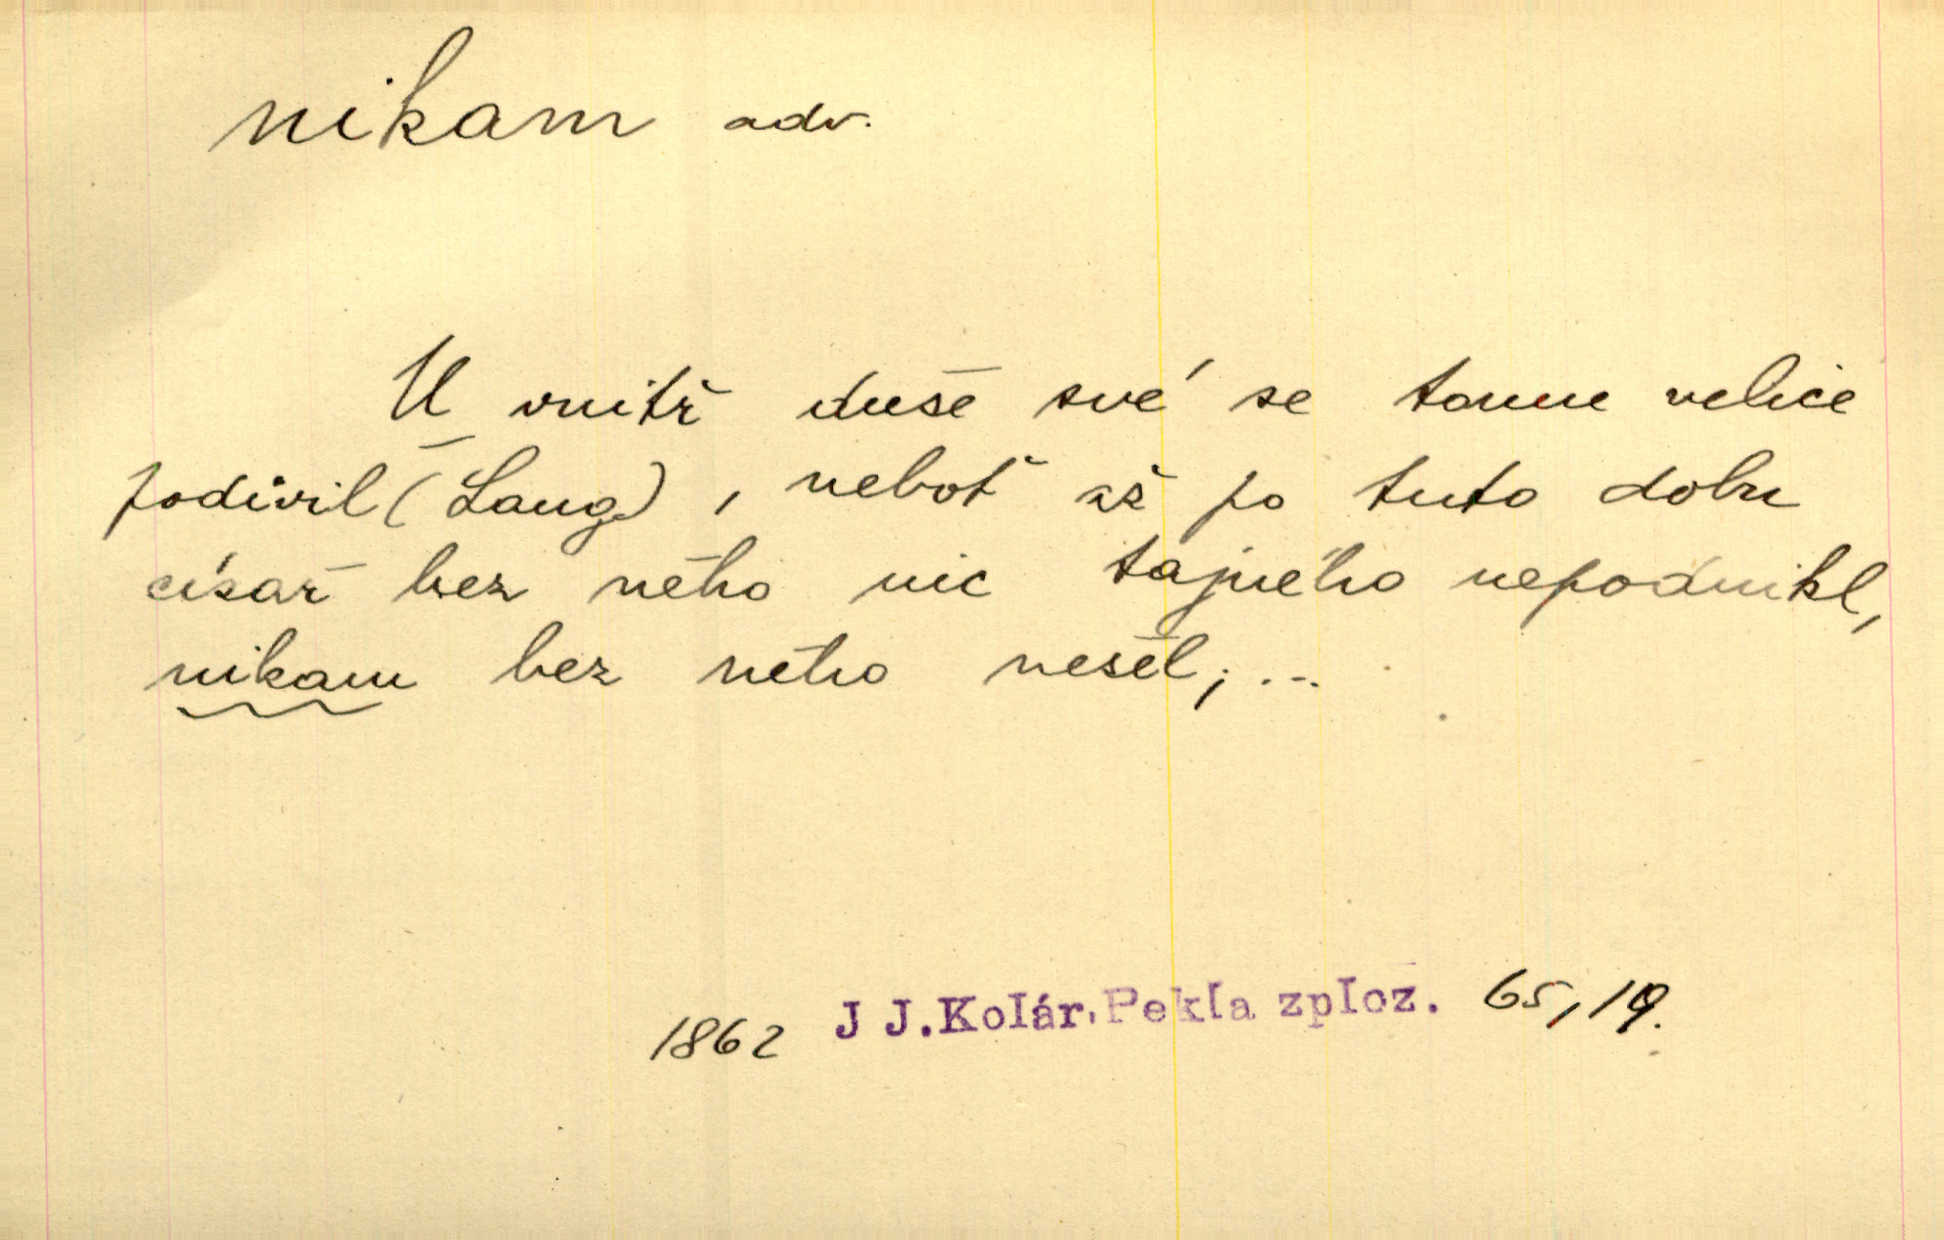 nikam adv.
U vnitř duše své se tomu velice
podivil (Lang), neboť až po tuto dobu
císař bez něho nic tajného nepodnikl,
nikam bez něho nešel; ...
1862 J J.Kolár, Pekla zploz. 65, 19.